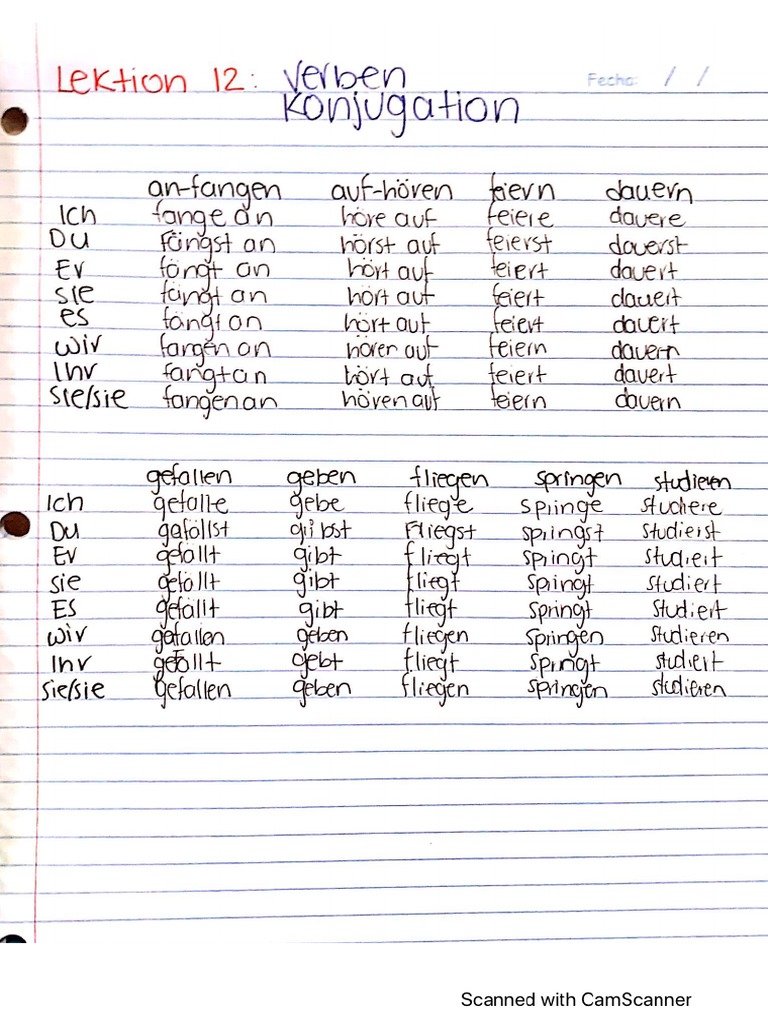 Lektion 12: Verben
Konjugation
Fecha: / /
an-fangen auf-hören feiern dauern
Ich fange an höre auf feiere dauere
Du fängst an hörst auf feierst dauerst
Er fängt an hört auf feiert dauert
sie fängt an hört auf feiert dauert
es fängt an hört auf feiert dauert
wir fangen an hören auf feiern dauern
Ihr fangt an hört auf feiert dauert
Sie/sie fangen an hören auf feiern dauern
gefallen geben fliegen springen studieren
Ich gefalle gebe fliege springe studiere
Du gafällst gibst Fliegst springst studierst
Er gefällt gibt fliegt springt studiert
sie gefällt gibt fliegt springt studiert
ES gefällt gibt fliegt springt studiert
wir gefallen geben fliegen springen studieren
Ihr gefällt gebt fliegt springt studiert
sie/sie gefallen geben fliegen springen studieren
Scanned with CamScanner